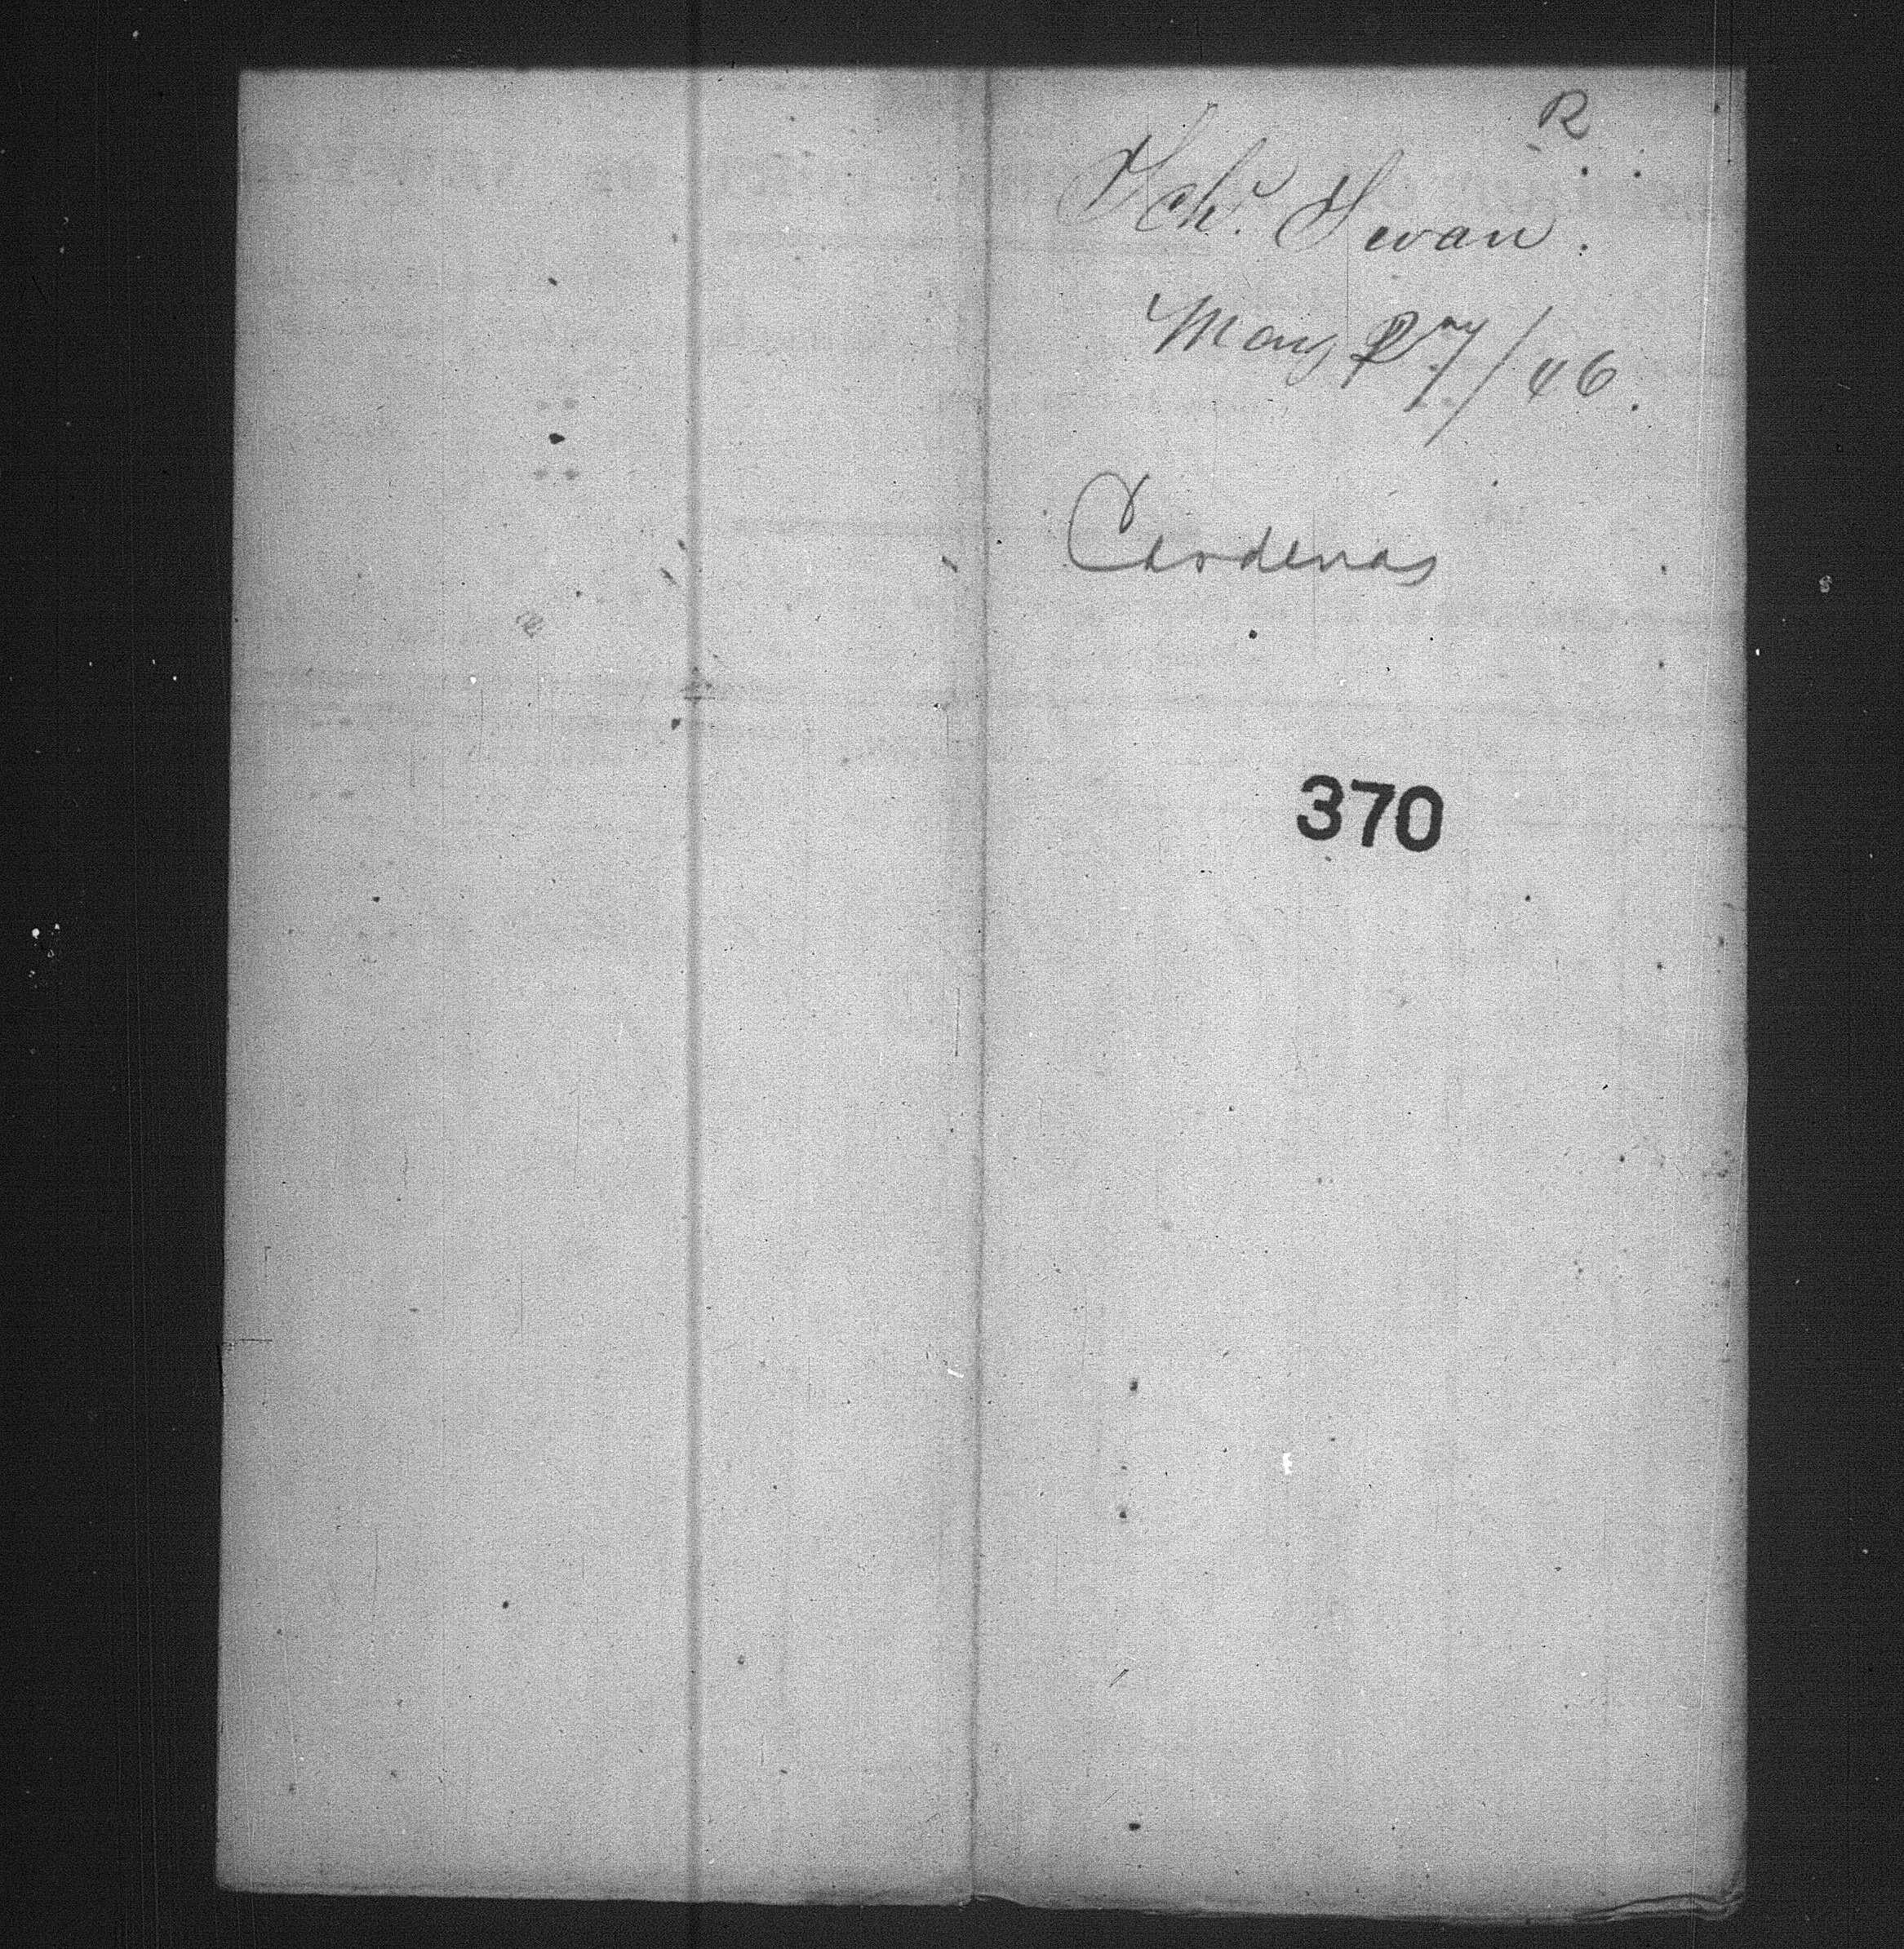 R
Schr. Swan.
May 27/46.
Cardenas
370